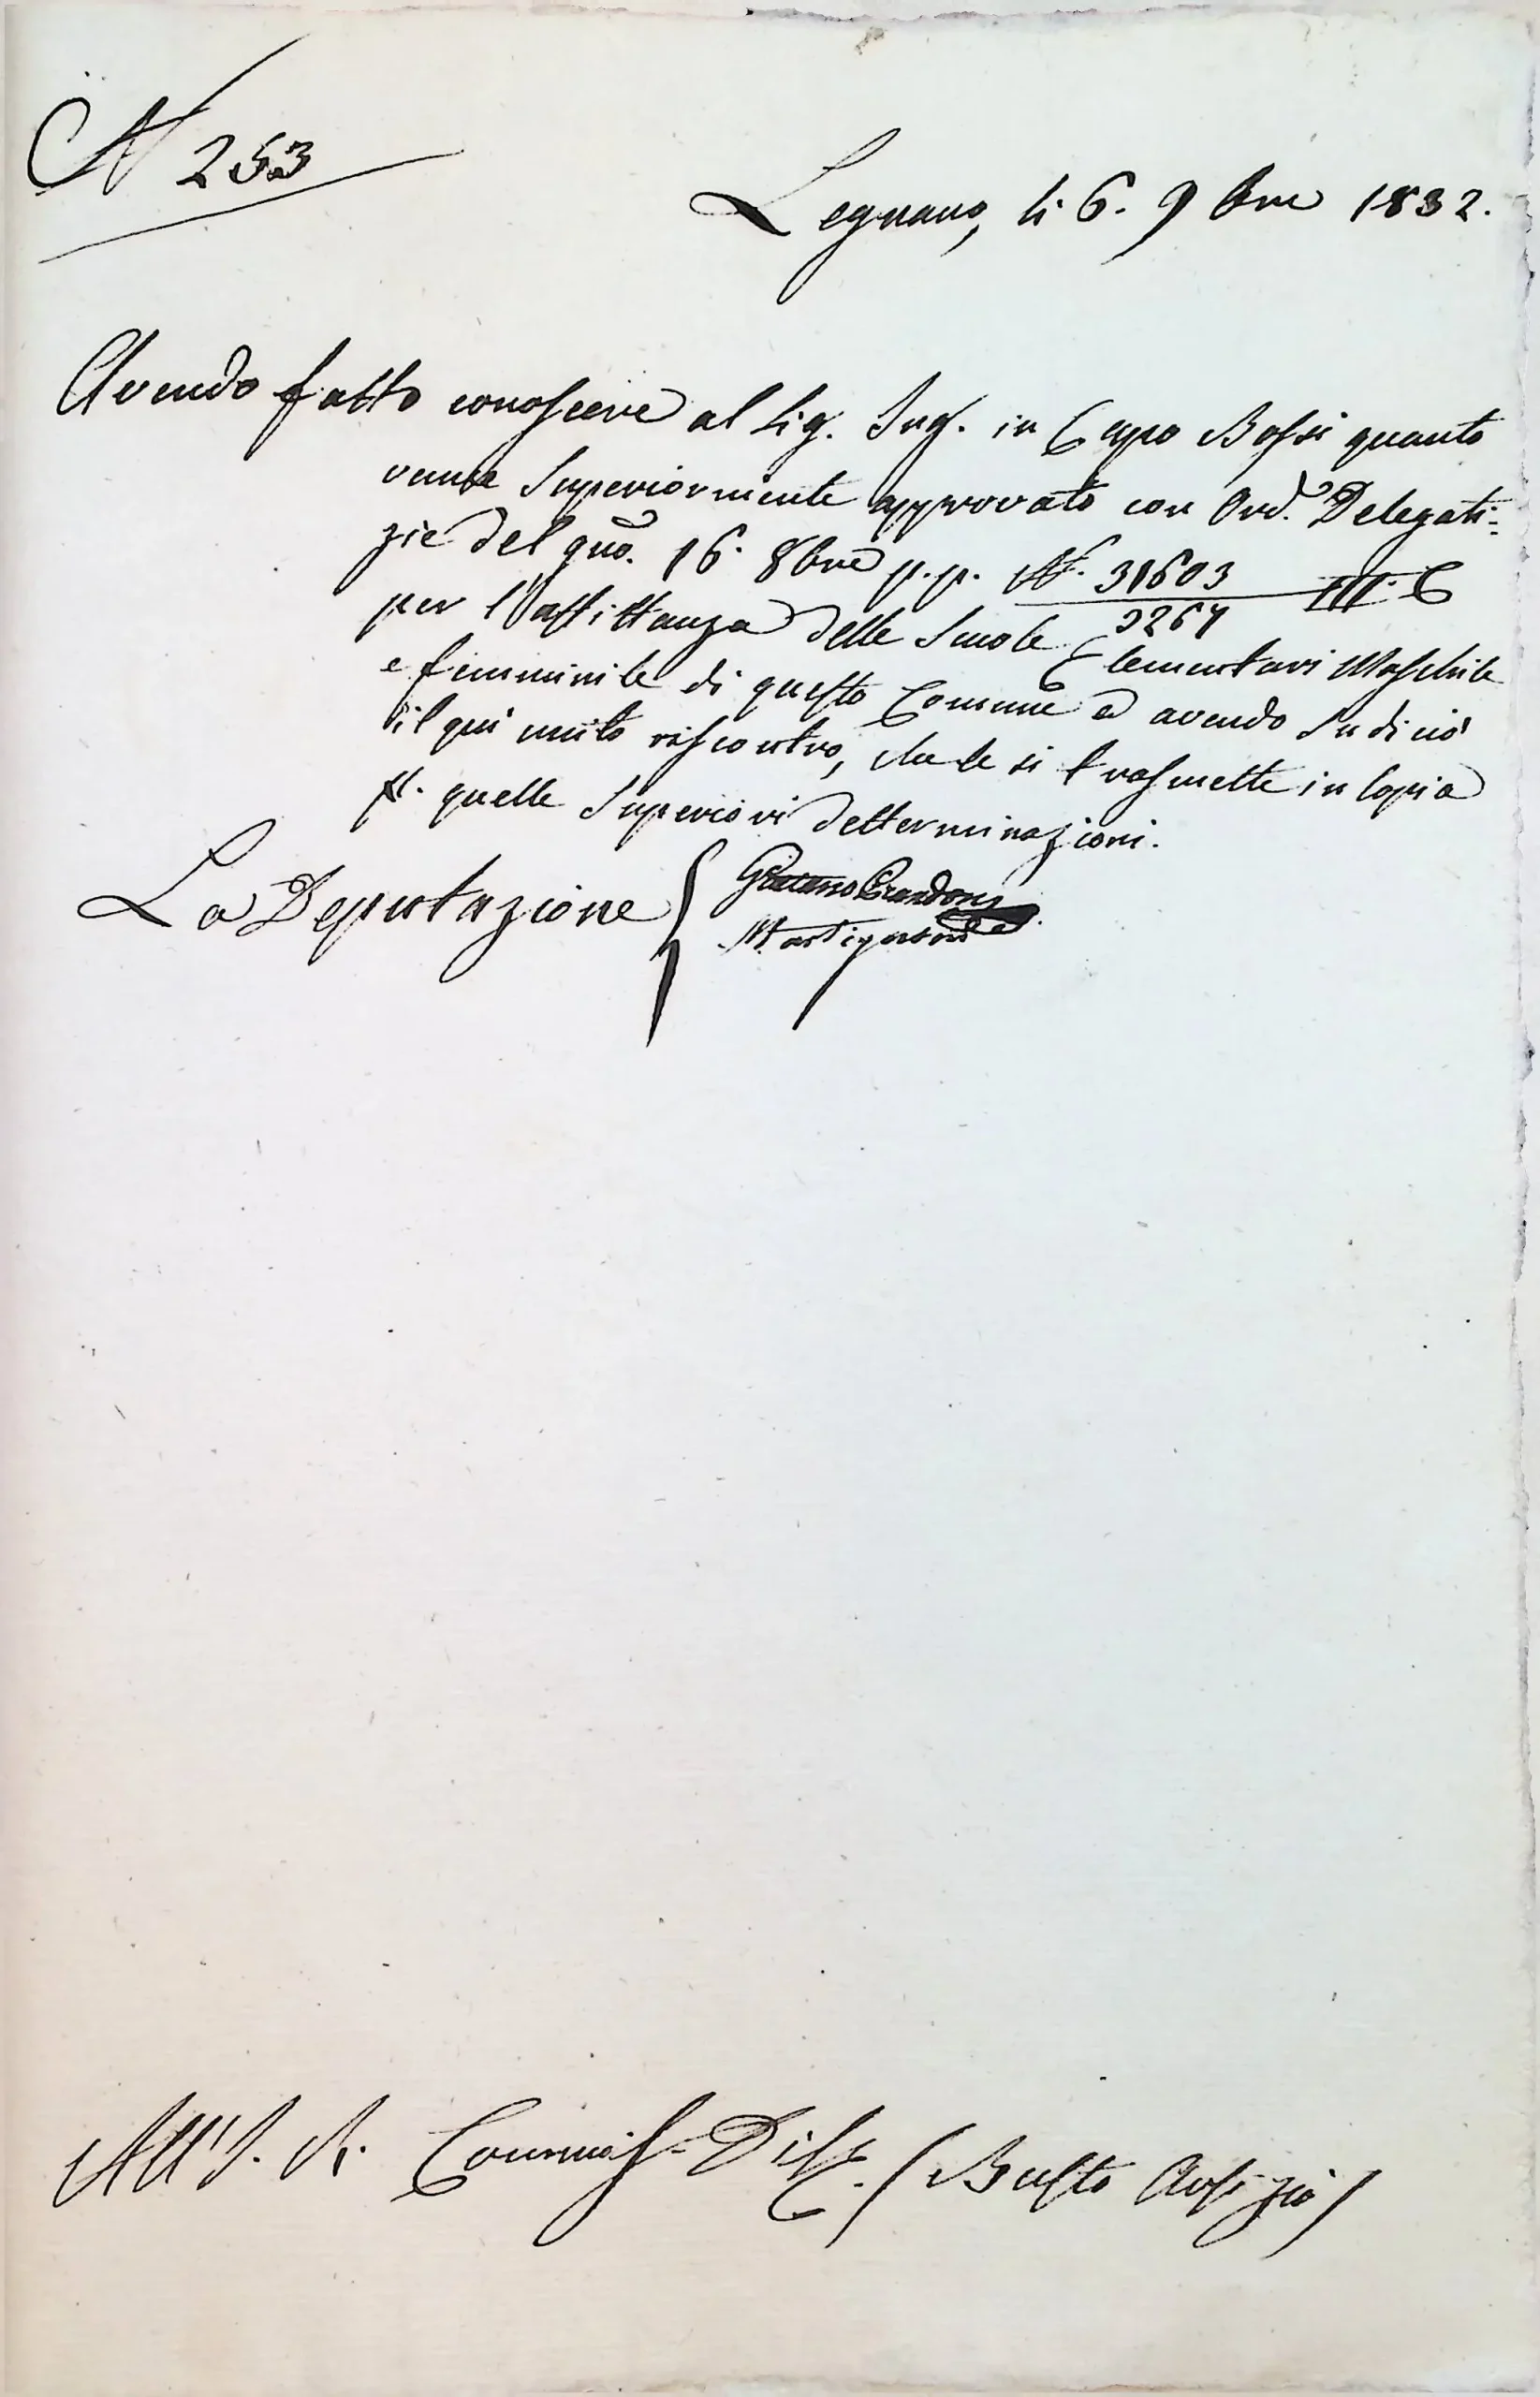 N 253
Legnano, li 6. 9bre 1832.
Avendo fatto conoscere al Sig. Ing. in Capo Bossi quanto
venne Superiormente approvato con Ord.ᵃ Delegati=
zie del gno. 16. 8bre p.p. N. 31603 / 3267 III. C
per l'affittanza delle Scuole Elementari Maschile
e femminile di questo Comune ed avendo Su di ciò
il qui unito riscontro, che le si trasmette in Copia
p. quelle Superiori detterminazioni.
La Deputazione
All'I. R. Commiss. Dist. (Busto Arsizio)